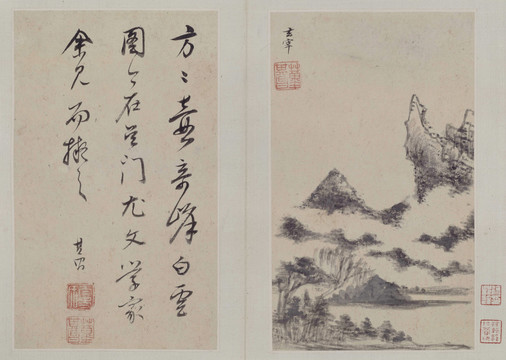 方方壺奇峰白雲
圖今在吳門尤文學家
余見而擬之
其昌
玄宰